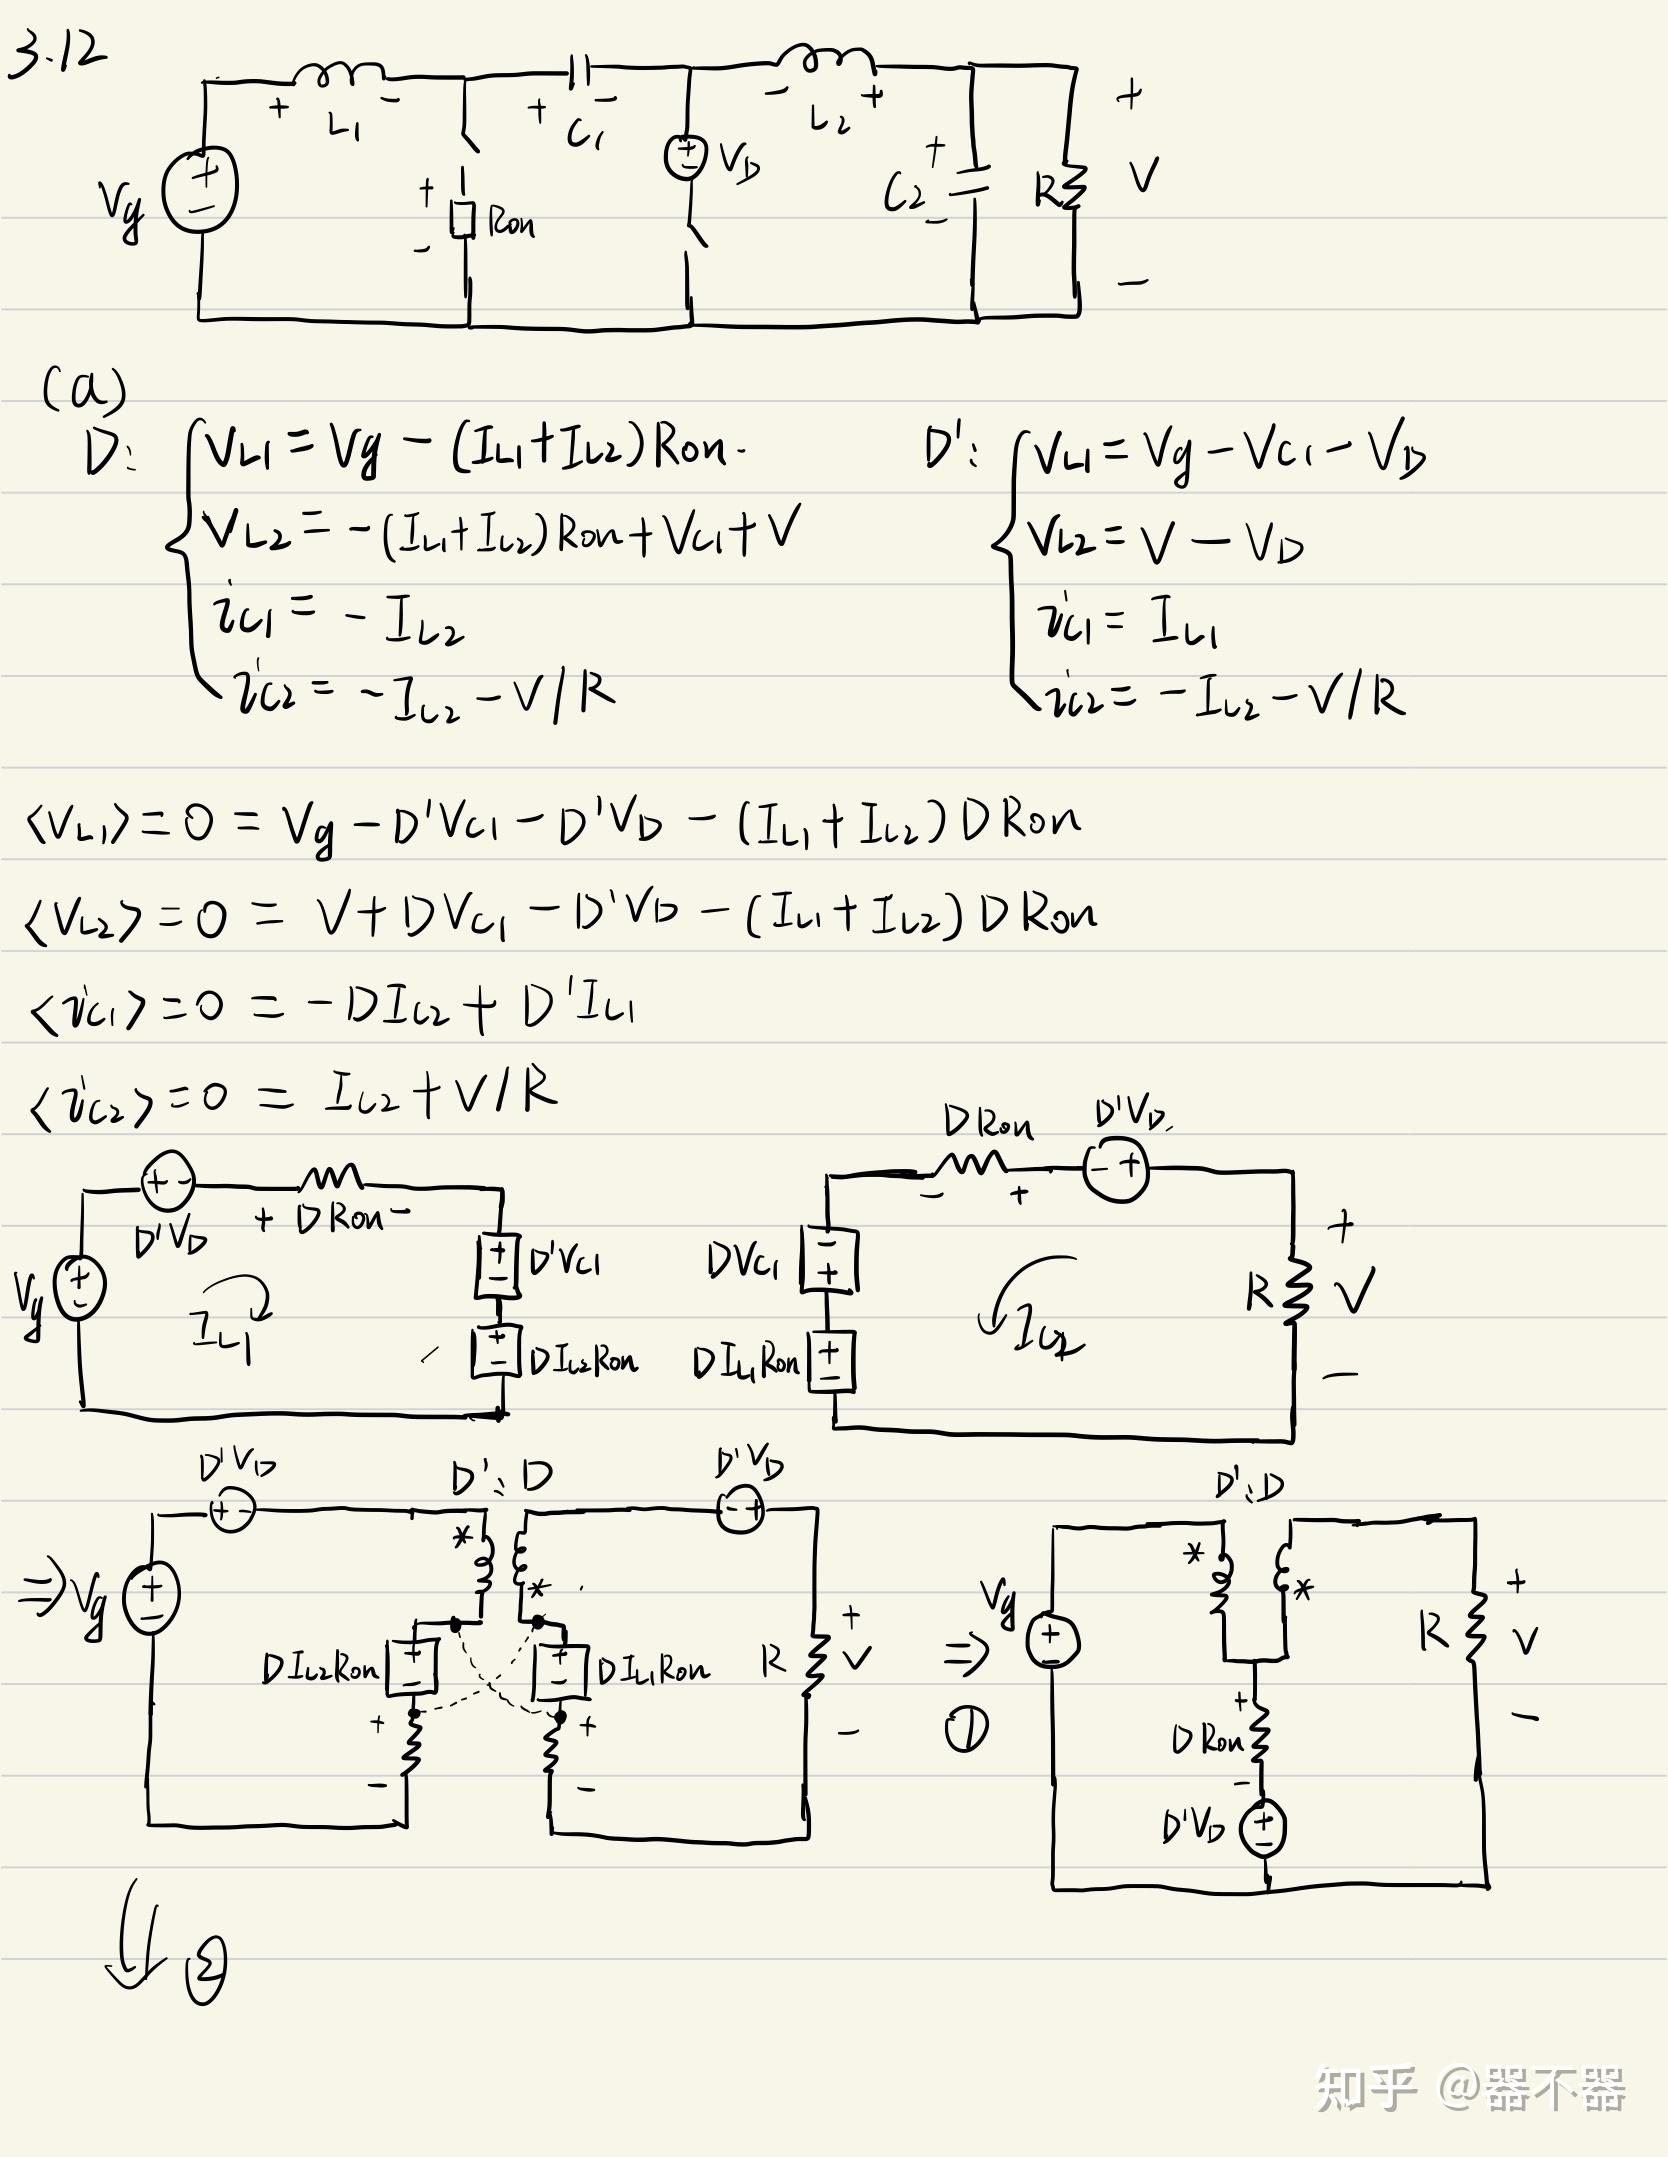 3.12
+ L1 -
+ C1 -
- L2 +
+
Vg
+
-
+
-
Ron
+
-
VD
+
C2
-
R
V
-
(a)
D:
VL1 = Vg - (IL1+IL2)Ron.
VL2 = -(IL1+IL2)Ron+VC1+V
iC1 = - IL2
iC2 = -IL2 - V/R
D':
VL1 = Vg - VC1 - VD
VL2 = V - VD
iC1 = IL1
iC2 = -IL2 - V/R
<VL1> = 0 = Vg - D'VC1 - D'VD - (IL1+IL2)DRon
<VL2> = 0 = V + DVC1 - D'VD - (IL1+IL2)DRon
<iC1> = 0 = -DIL2 + D'IL1
<iC2> = 0 = IL2 + V/R
+ -
D'VD
+ DRon -
Vg
+
-
IL1
+
-
D'VC1
+
-
DIL2Ron
DRon
- +
D'VD
- +
DVC1
-
+
DIL1Ron
+
-
IL2
R
+
V
-
⇒
Vg
+
-
D'VD
+ -
D':D
*
*
D'VD
- +
DIL2Ron
+
-
DIL1Ron
+
-
+
-
+
-
R
+
V
-
⇒
①
D':D
Vg
+
-
*
*
+
DRon
-
D'VD
+
-
R
+
V
-
⇓ ②
知乎 @器不器